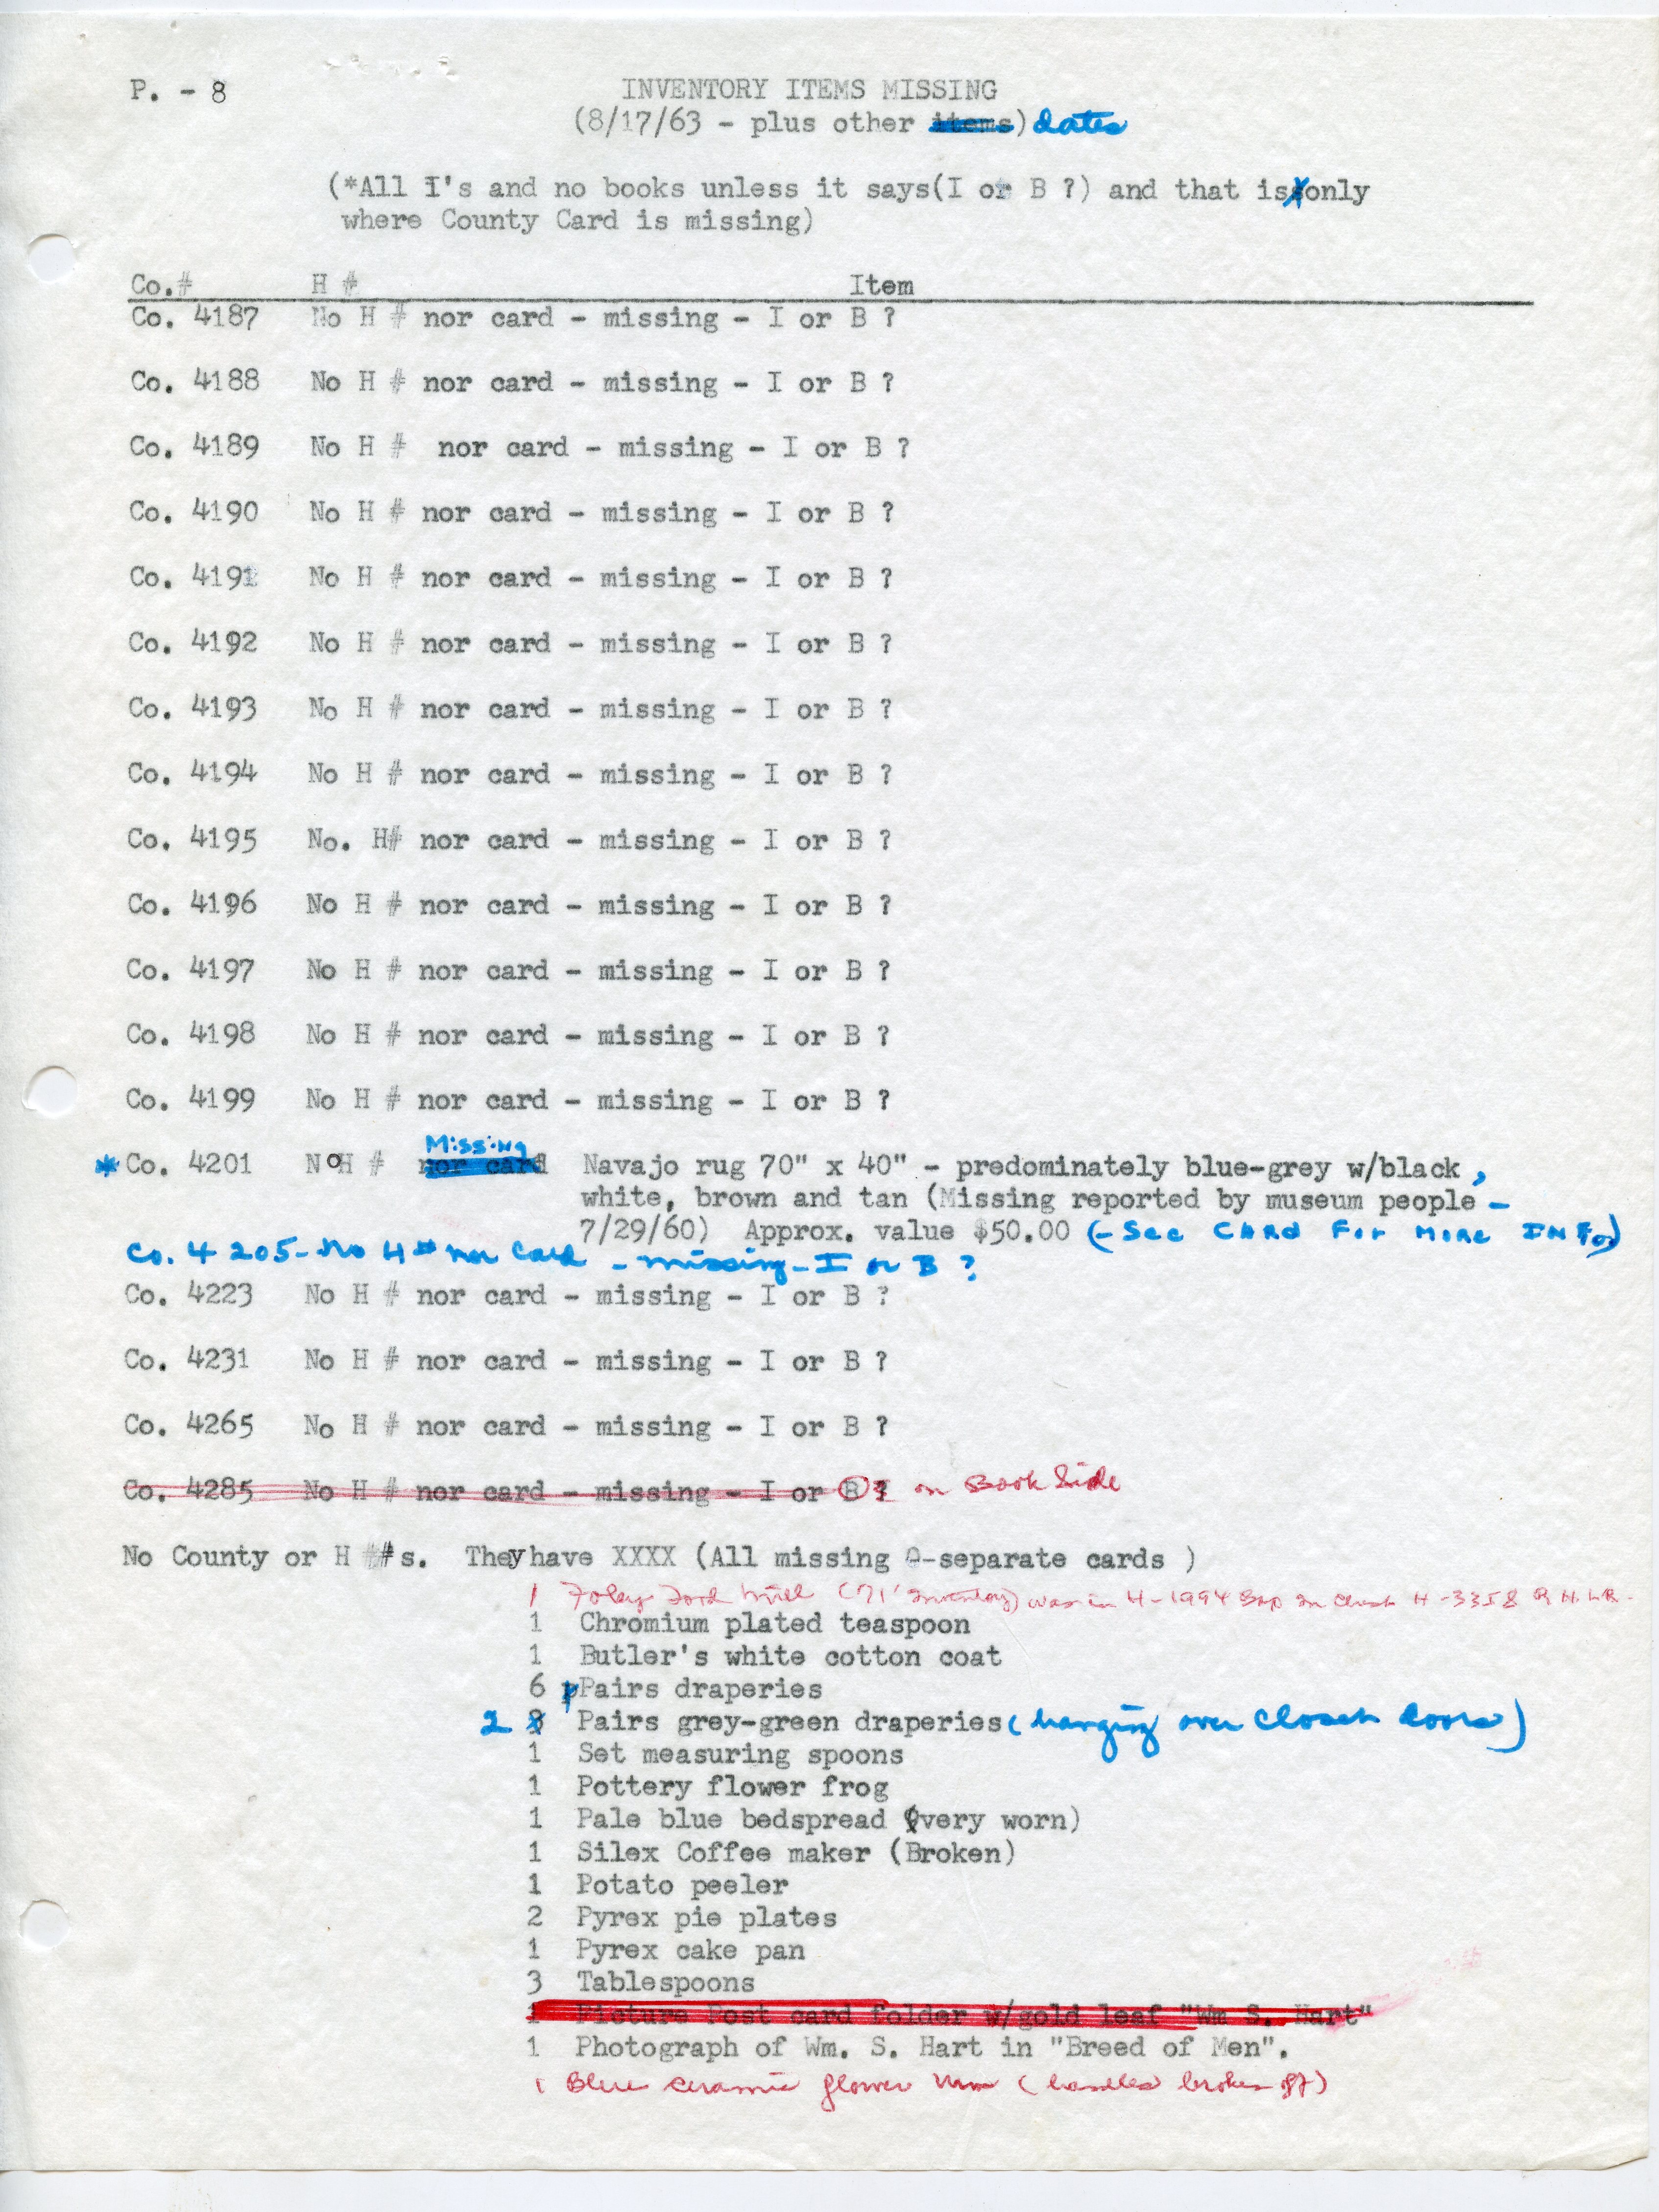 P. - 8
INVENTORY ITEMS MISSING
(8/17/63 - plus other items) dates
(*All I's and no books unless it says(I or B ?) and that is only
where County Card is missing)
Co.# H # Item
Co. 4187 No H # nor card - missing - I or B ?
Co. 4188 No H # nor card - missing - I or B ?
Co. 4189 No H # nor card - missing - I or B ?
Co. 4190 No H # nor card - missing - I or B ?
Co. 4191 No H # nor card - missing - I or B ?
Co. 4192 No H # nor card - missing - I or B ?
Co. 4193 No H # nor card - missing - I or B ?
Co. 4194 No H # nor card - missing - I or B ?
Co. 4195 No. H# nor card - missing - I or B ?
Co. 4196 No H # nor card - missing - I or B ?
Co. 4197 No H # nor card - missing - I or B ?
Co. 4198 No H # nor card - missing - I or B ?
Co. 4199 No H # nor card - missing - I or B ?
Missing
* Co. 4201 No H # nor card Navajo rug 70" x 40" - predominately blue-grey w/black,
white, brown and tan (Missing reported by museum people -
7/29/60) Approx. value $50.00 (- See CARD For MORE INFO)
Co. 4205 - No H # nor Card - missing - I or B ?
Co. 4223 No H # nor card - missing - I or B ?
Co. 4231 No H # nor card - missing - I or B ?
Co. 4265 No H # nor card - missing - I or B ?
Co. 4285 No H # nor card - missing - I or B ? on Book Side
No County or H ##s. They have XXXX (All missing -separate cards )
1 Foley Food Mill (71' Inventory) was in H-1994 in chest H-3358 R H. L.R.
1 Chromium plated teaspoon
1 Butler's white cotton coat
6 pPairs draperies
2 8 Pairs grey-green draperies (hanging over closet doors)
1 Set measuring spoons
1 Pottery flower frog
1 Pale blue bedspread (very worn)
1 Silex Coffee maker (Broken)
1 Potato peeler
2 Pyrex pie plates
1 Pyrex cake pan
3 Tablespoons
1 Picture Post card folder w/gold leaf "Wm S. Hart"
1 Photograph of Wm. S. Hart in "Breed of Men".
1 Blue ceramic flower urn (handles broken off)